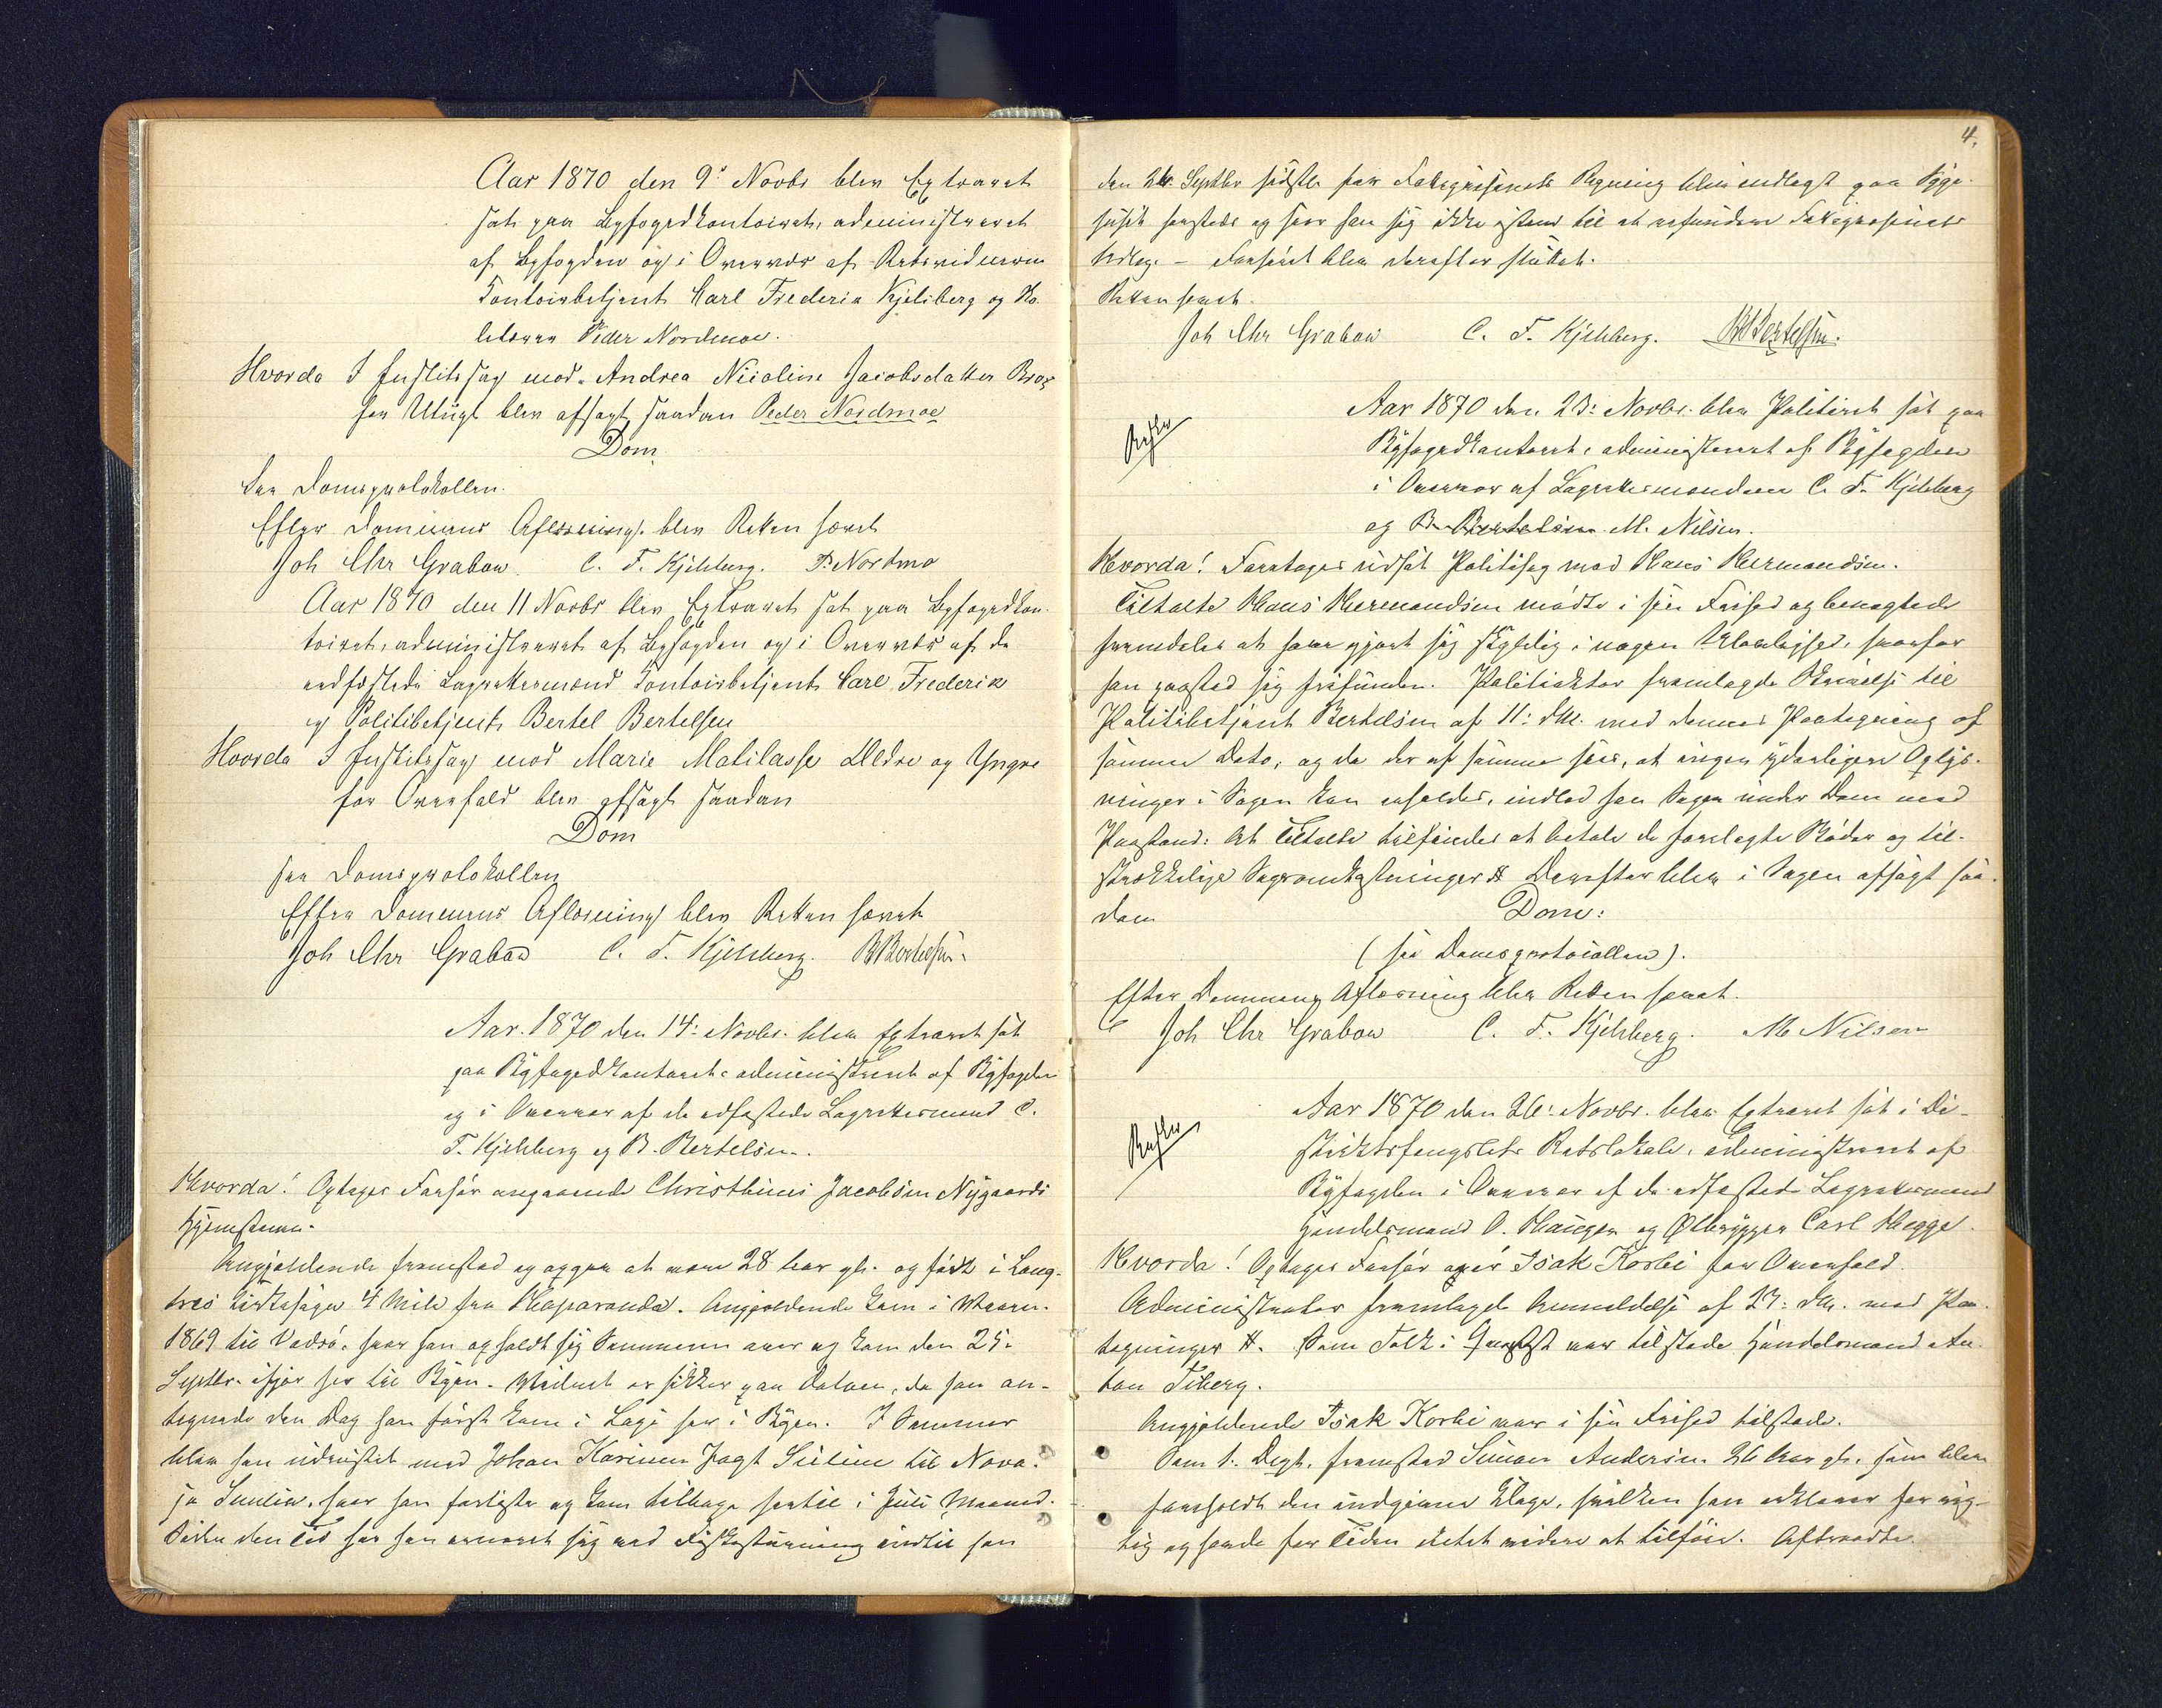 Aar 1870 den 9' Novbr blev Extraret
sat paa Byfogedkontoiret, administreret
af Byfogden og i Overvær af Retsvidnerne
Contoirbetjent Carl Frederik Kjelsberg og
Peder Nordmoe.
Hvorda I Justitssag mod Andrea Nicoline Jacobsdatter
for Utugt blev afsagt saadan Peder Nordmoe
Dom
See Domsprotokollen.
Efter Dommens Aflæsning blev Retten hævet
Joh Chr Grabow C. F. Kjelsberg. P. Nordmo
Aar 1870 den 11 Novbr blev Extraret sat paa Byfogedkon-
toiret, administreret af Byfogden og i Overvær af de
edfæstede Lagrettesmænd Contoirbetjent Carl Frederik
og Politibetjent Bertel Bertelsen
Hvorda I Justitssag mod Marie Matilasse Ældre og Yngre
for Overfald blev afsagt saadan
Dom
see Domsprotokollen
Efter Dommens Aflæsning blev Retten hævet
Joh Chr Grabow C. F. Kjelsberg. B Bertelsen.
Aar 1870 den 14: Novbr. blev Extraret sat
paa Byfogedkontoret administreret af Byfogden
og i Overvær af de edfæstede Lagrettesmænd C.
F. Kjelsberg og B. Bertelsen.
Hvorda! Optages Forhør angaaende Christhinus Jacobsen Nygaards
Hjemstavn.
Angjældende fremstod og opgav at være 28 Aar gl. og født i
4 Mile fra Haparanda. Angjældende kom i Vaaren
1869 til Vadsø, hvor han opholdt sig Sommeren over og kom den 25:
Septbr. ifjor her til Byen. Vidnet er sikker paa Datoen, da han an-
tegnede den Dag han først kom i Logi her i Byen. I Sommer
blev han udrustet med Johan Jagt til Nova
hvor han forliste og kom tilbage hertil i Juli Maaned.
Siden den Tid har han ernæret sig ved indtil han
4.
den 26. Septbr sidstl. for Fattigvæsenets Regning blev indlagt paa Syge-
huset hersteds og saae han sig ikke istand til at refundere Fattigvæsenets
Udlæg. - Forhøret blev derefter sluttet.
Retten hævet.
Joh Chr Grabow C. F. Kjelsberg. B Bertelsen.
Aar 1870 den 23: Novbr. blev Politiret sat paa
Byfogedkontoret, administreret af Byfogden
i Overvær af Lagrettesmændene C. F. Kjelsberg
og B. Bertelsen M. Nilsen.
Hvorda! Foretages udsat Politisag mod Hans Hermandsen.
Tiltalte Hans Hermandsen mødte i sin Frihed og benegtede
fremdeles at have gjort sig skyldig i nogen Ulovlighed, hvorfor
han paastod sig frifunden. Politiaktor fremlagde Skrivelse til
Politibetjent Bertelsen af 11: ds. med dennes Paategning af
samme Dato, og da der af samme sees, at ingen yderligere Oplys-
ninger i Sagen kan erholdes, indlod han Sagen under Dom med
Paastand: At Tiltalte tilfindes at betale de forelagte Bøder og til-
strækkelige Sagsomkostninger # Derefter blev i Sagen afsagt saa-
dan Dom:
( see Domsprotocollen).
Efter Dommens Aflæsning blev Retten hævet.
Joh Chr Grabow C. F. Kjelsberg. M Nilsen
Aar 1870 den 26: Novbr. blev Extraret sat i Di-
striktsfengslets Retslokale, administreret af
Byfogden i Overvær af de edfæstede Lagrettesmænd
Handelsmand O. Haugen og Ølbrygger Carl Hegge.
Hvorda! Optages Forhør over Isak Korbi for Overfald.
Administrator fremlagde Anmeldelse af 23: ds. med Paa-
tegninger #. Som Tolk i var tilstede Handelsmand An-
ton Tiberg.
Angjældende Isak Korbi var i sin Frihed tilstede.
Som 1. Dept. fremstod Simon Andersen 26 Aar gl., som blev
foreholdt den indgivne Klage, hvilken han erklærer for rig-
tig og havde for Tiden intet videre at tilføie. Aftraadte.